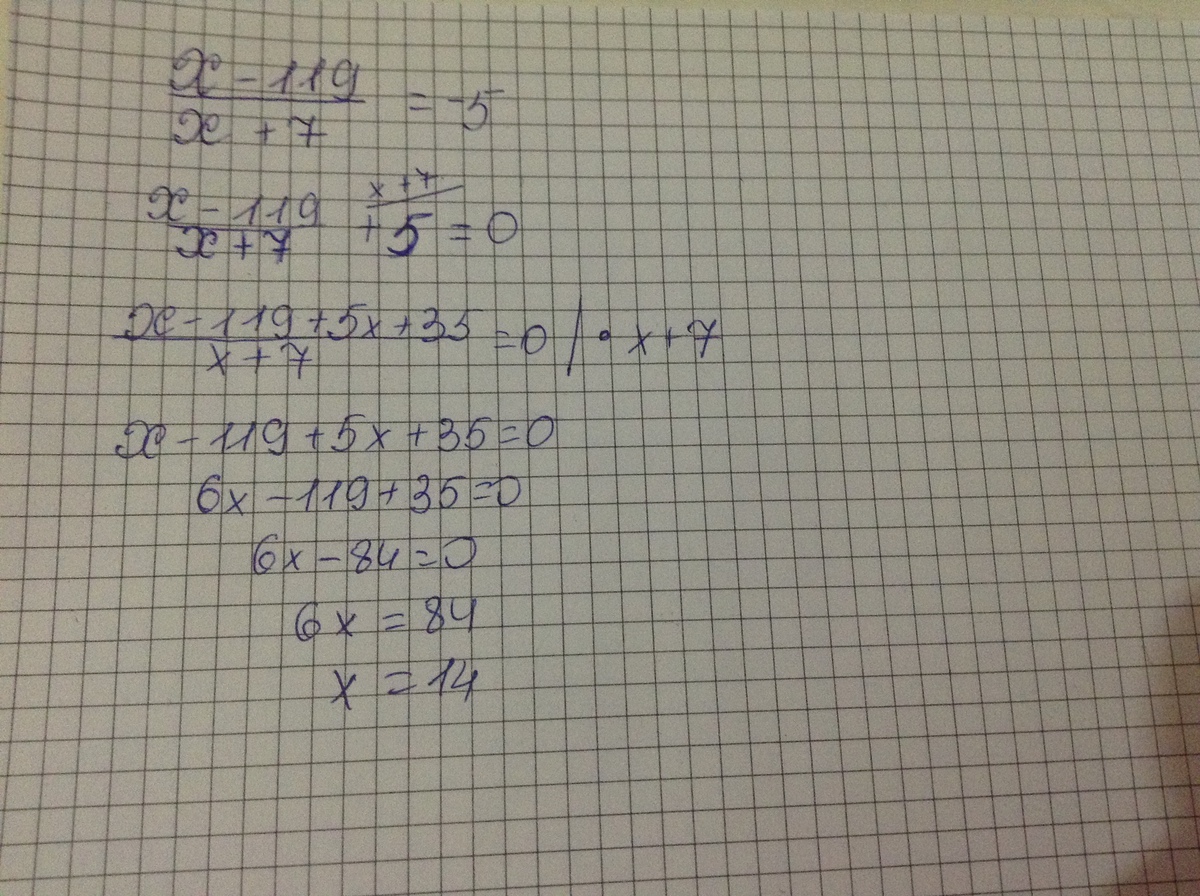 x - 119
x + 7 = -5
x + 7
x - 119 + 5 = 0
x + 7
x - 119 + 5x + 35 = 0 | • x + 7
x + 7
x - 119 + 5x + 35 = 0
6x - 119 + 35 = 0
6x - 84 = 0
6x = 84
x = 14